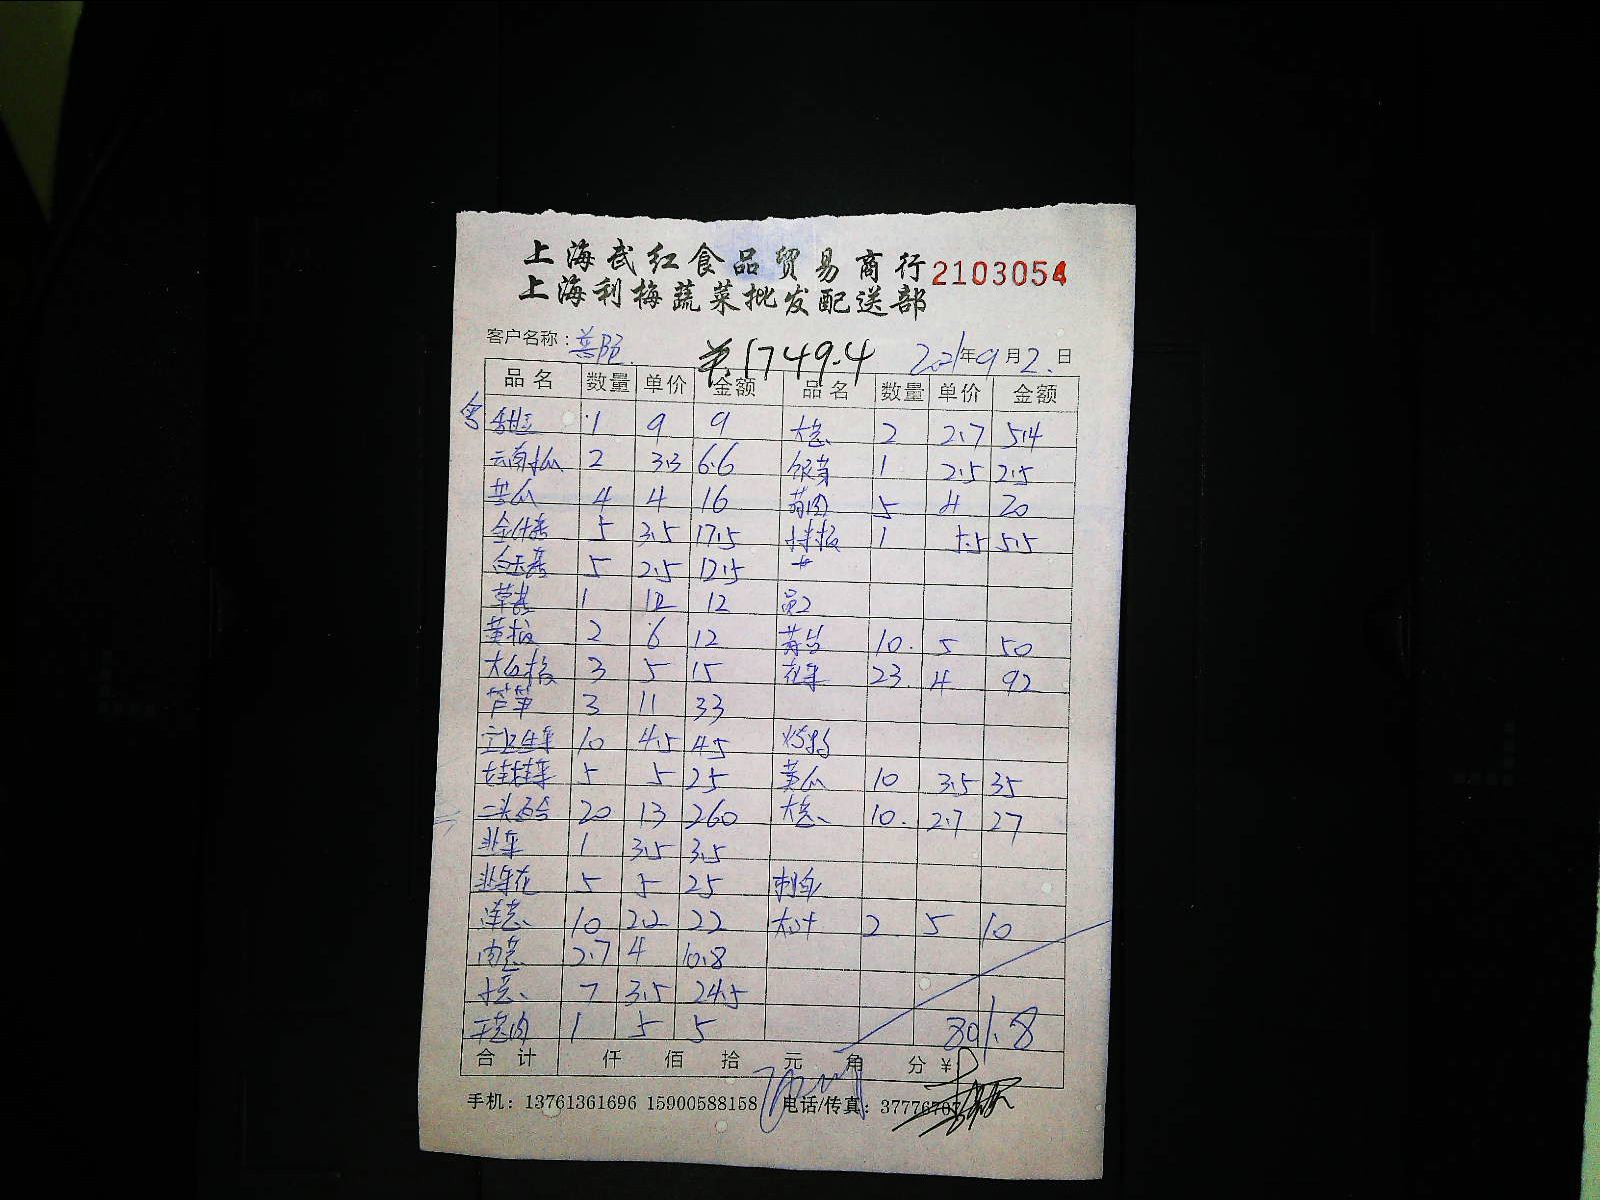 上海武红食品贸易商行
2103054
上海利梅蔬菜批发配送部
客户名称：
共1749.4
2021年9月2日
品名 数量 单价 金额 品名 数量 单价 金额
1 9 9 大葱 2 2.7 5.4
云南小瓜 2 3.3 6.6 银芽 1 2.5 2.5
苦瓜 4 4 16 5 4 20
5 3.5 17.5 1 5.5 5.5
白玉菇 5 2.5 12.5
草菇 1 12 12 员工
黄椒 2 6 12 10 5 50
大红椒 3 5 15 花菜 23 4 92
芦笋 3 11 33
10 4.5 45
娃娃菜 5 5 25 黄瓜 10 3.5 35
二头百合 20 13 260 大葱 10 2.7 27
韭菜 1 3.5 3.5
韭菜花 5 5 25 刺身
洋葱 10 2.2 22 2 5 10
2.7 4 10.8
7 3.5 24.5
干葱肉 1 5 5
801.8
合计 仟 佰 拾 元 角 分 ¥
手机：13761361696 15900588158 电话/传真：37776707